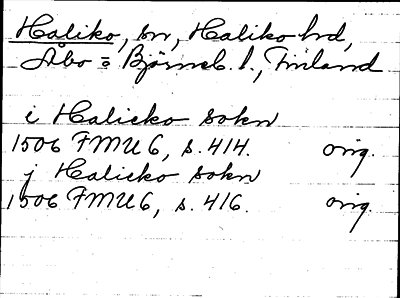 Haliko, sn, Haliko hrd,
Åbo o Björneb. l., Finland
i Halicko sokn
1506 FMU 6, s. 414. orig.
j Halicko sokn
1506 FMU 6, s. 416. orig.